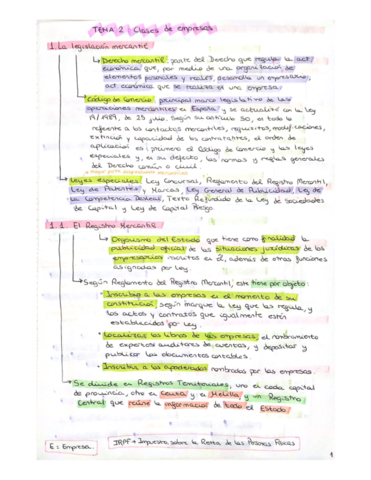 TEMA 2 Clases de empresas
1 La legislación mercantil
Derecho mercantil: parte del Derecho que regula la act.
económica que, por medio de una organización de
elementos personales y reales, desarrolla un empresario;
act. económica que se realiza en una empresa.
Código de Comercio: principal marco legislativo de las
operaciones mercantiles en España, y se actualizó en la Ley
19/1989, de 25 julio. Según su artículo 50, en todo lo
referente a los contratos mercantiles, requisitos, modificaciones,
extinción y capacidad de los contratantes, el orden de
aplicación es: primero el Código de Comercio y las leyes
especiales y, en su defecto, las normas y reglas generales
del Derecho común o civil
Leyes especiales: Ley Concursal, Reglamento del Registro Mercantil,
Ley de Patentes y Marcas, Ley General de Publicidad, Ley de
la Competencia Desleal, Texto Refundido de la Ley de Sociedades
de Capital y Ley de Capital Riesgo
1.1 El Registro Mercantil
Organismo del Estado que tiene como finalidad la
publicidad oficial de las situaciones jurídicas de los
empresarios inscritos en él, además de otras funciones
asignadas por ley.
Según Reglamento del Registro Mercantil, este tiene por objeto:
Inscribir a las empresas en el momento de su
constitución, según marque la ley que las regula, y
los actos y contratos que igualmente estén
establecidos por ley.
Legalizar los libros de las empresas, el nombramiento
de expertos auditores de cuentas, y depositar y
publicar los documentos contables.
Inscribir a los apoderados nombrados por las empresas.
Se divide en Registros Territoriales, uno en cada capital
de provincia, otro en Ceuta y en Melilla, y un Registro
Central que reúne la información de todo el Estado.
E = Empresa
IRPF → Impuesto sobre la Renta de las Personas Físicas
1